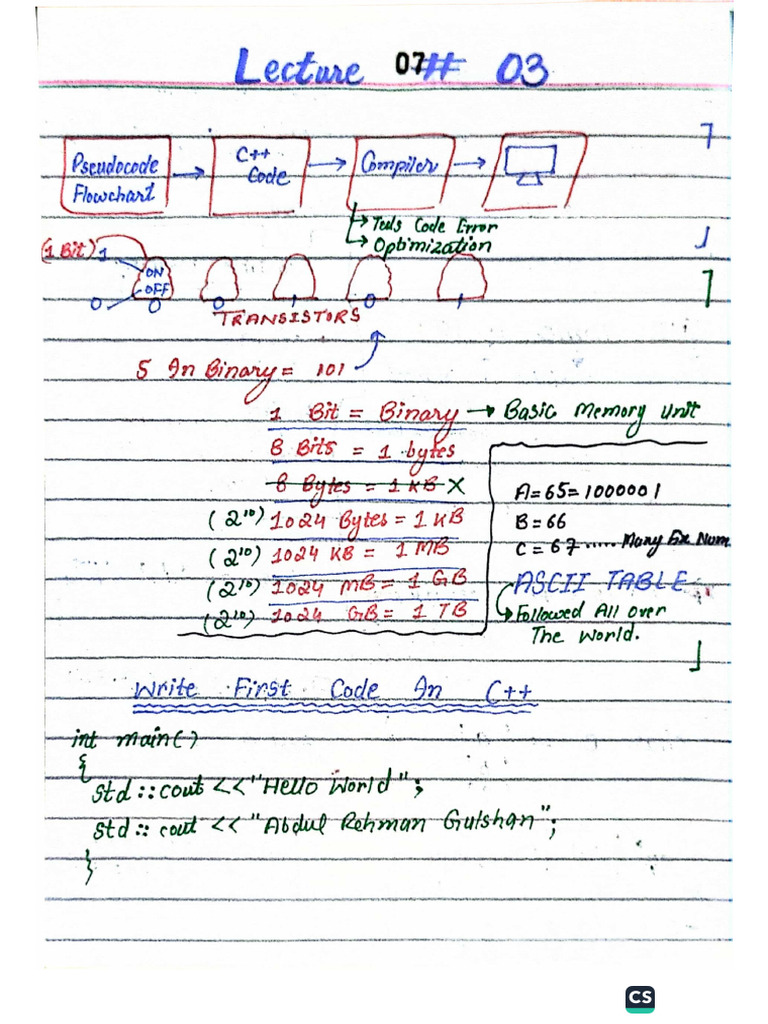 Lecture 07# 03
Pseudocode Flowchart
C++ Code
Compiler
Tells Code Error
Optimization
(1 Bit) 1
ON
OFF
0 0 0 1 0 1
TRANSISTORS
5 In Binary = 101
1 Bit = Binary → Basic Memory Unit
8 Bits = 1 bytes
8 Bytes = 1 KB X
(2¹⁰) 1024 Bytes = 1 KB
(2¹⁰) 1024 KB = 1 MB
(2¹⁰) 1024 MB = 1 GB
(2¹⁰) 1024 GB = 1 TB
A=65=1000001
B=66
C=67..... Many Num
ASCII TABLE
Followed All over
The World.
Write First Code In C++
int main()
{
std::cout <<"Hello World";
std:: cout << "Abdul Rehman Gulshan";
}
CS